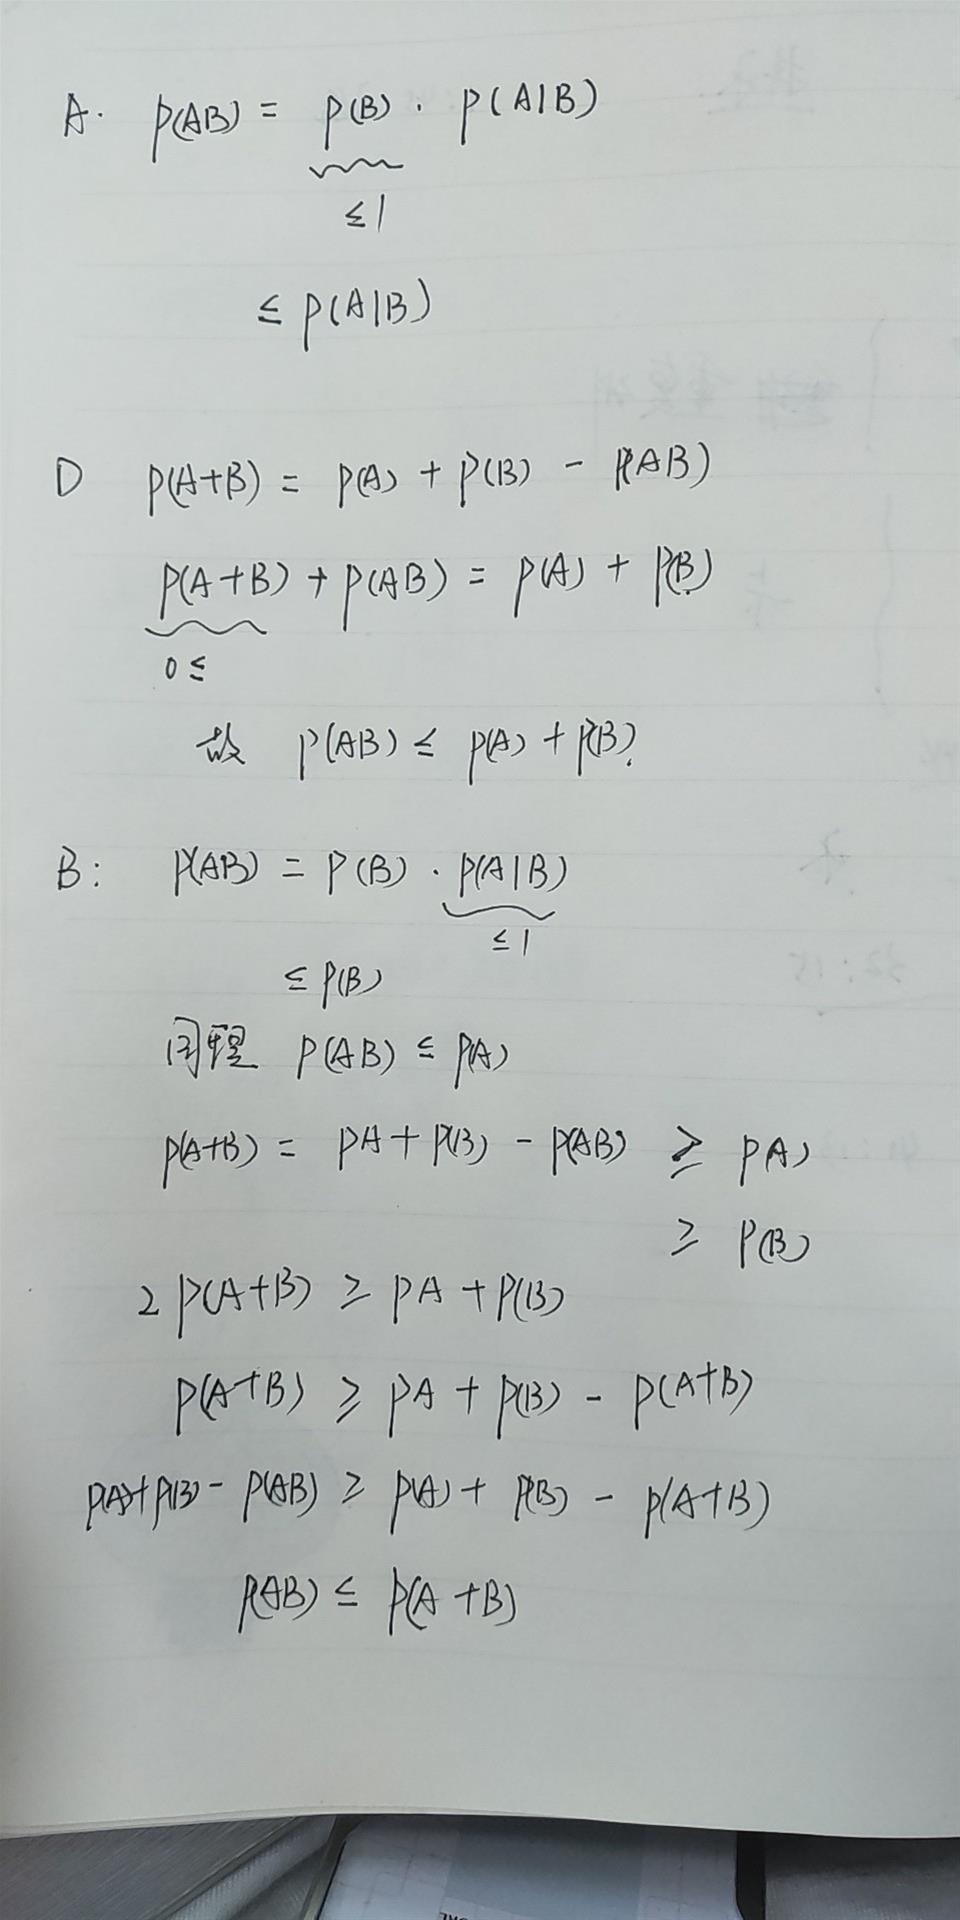 A. P(AB) = P(B) · P(A|B)
≤1
≤ P(A|B)
D P(A+B) = P(A) + P(B) - P(AB)
P(A+B) + P(AB) = P(A) + P(B)
0 ≤
故 P(AB) ≤ P(A) + P(B).
B: P(AB) = P(B) · P(A|B)
≤1
≤ P(B)
同理 P(AB) ≤ P(A)
P(A+B) = PA + P(B) - P(AB) ≥ PA)
≥ P(B)
2 P(A+B) ≥ PA + P(B)
P(A+B) ≥ PA + P(B) - P(A+B)
P(A)+P(B) - P(AB) ≥ P(A) + P(B) - P(A+B)
P(AB) ≤ P(A+B)